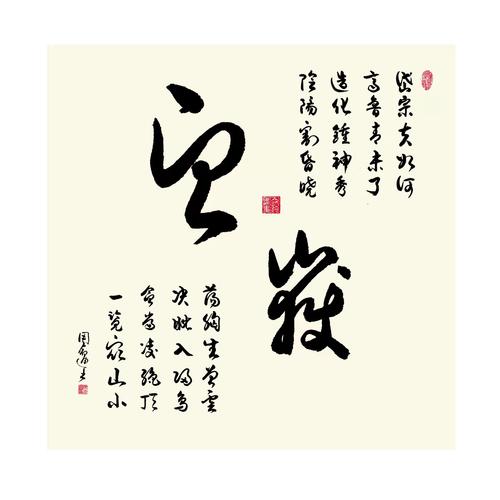 岱宗夫如何
齊魯青未了
造化鍾神秀
陰陽割昏曉
望
嶽
蕩胸生曾雲
決眥入歸鳥
會當凌絕頂
一覽眾山小